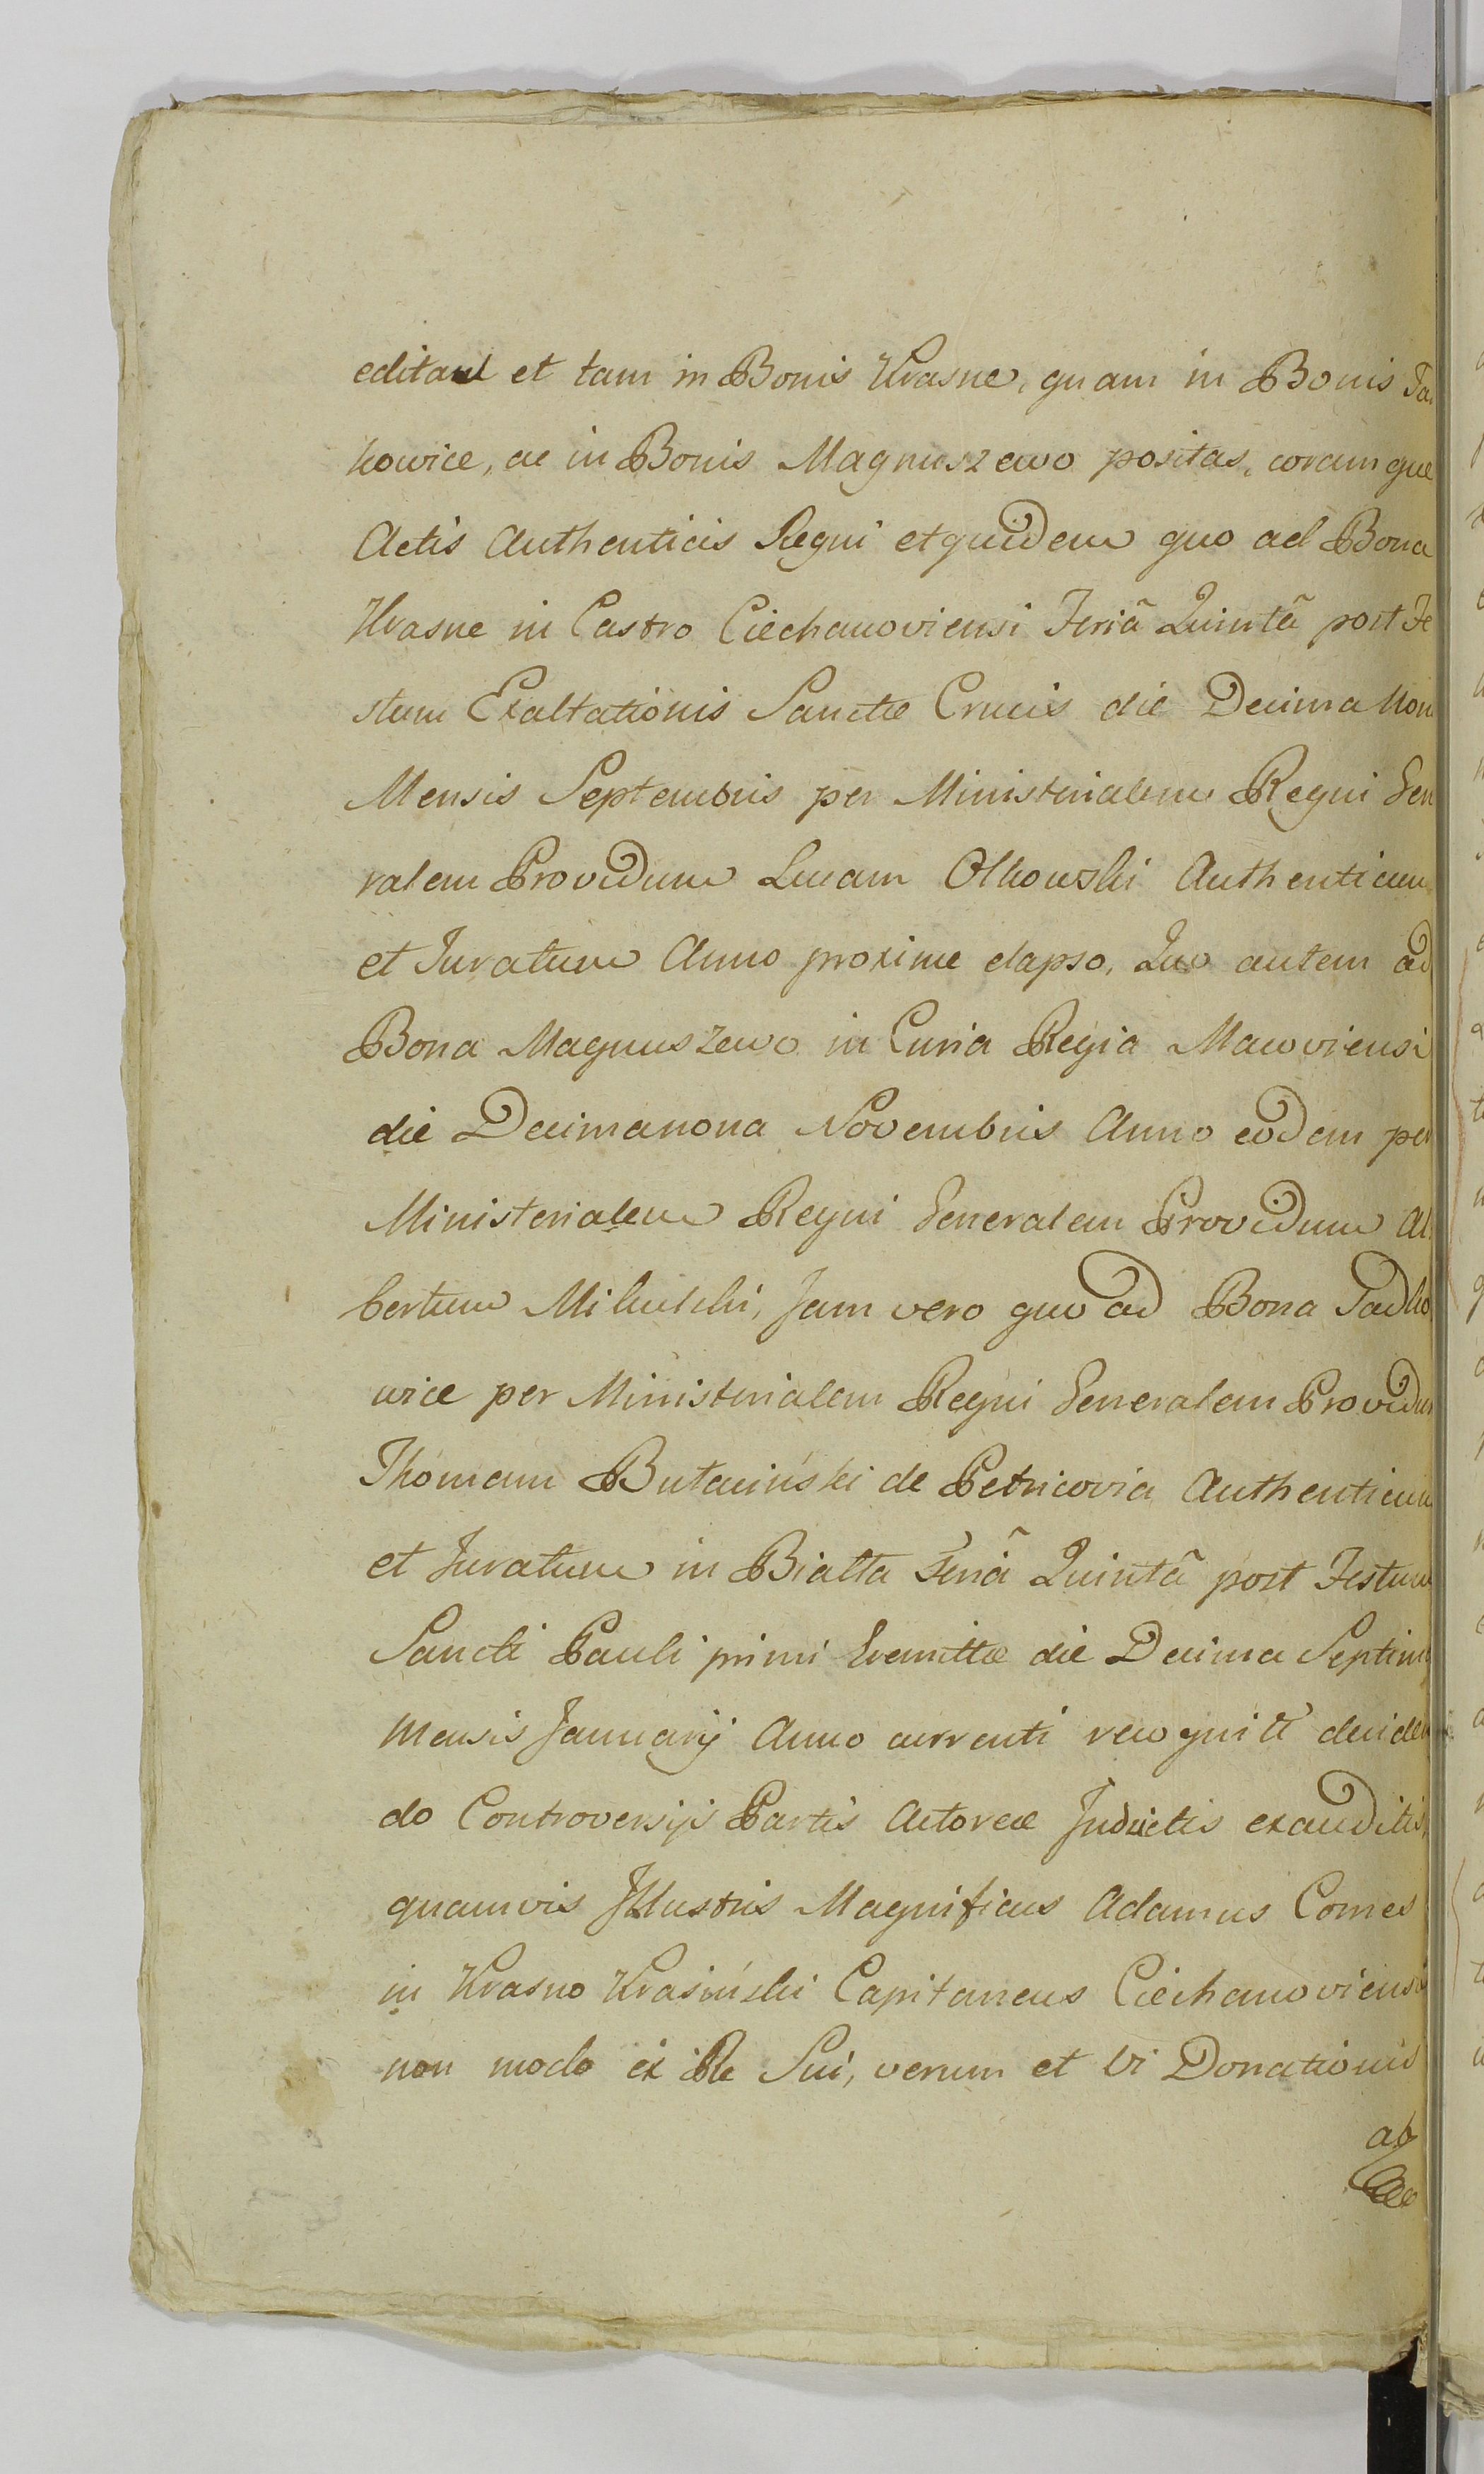 editas et tam in Bonis Krasne, quam in Bonis Ja
kowice, ac in Bonis Magnuszewo positas, coramque
Actis Authenticis Regni et quidem quo ad Bona
Krasne in Castro Ciechanoviensi Feriã Quintã post Fe
stum Exaltationis Sanctæ Crucis die Decima Non
Mensis Septembris per Ministerialem Regni Gen
ralem Providum Lucam Olkowski Authenticum
et Juratum Anno proxime elapso, Quo autem ad
Bona Magnuszewo in Curia Regia Macoviensi
die Decimanona Novembris Anno eodem per
Ministerialem Regni Generalem Providum Al
bertum Milewski, Jam vero quo ad Bona Jadko
wice per Ministerialem Regni Generalem Providum
Thomam Butawiński de Petricovia Authenticum
et Juratum in Bialla Feriã Quintã post Festum
Sancti Pauli primi Eremittæ die Decima Septima
Mensis Januarij Anno currenti recognitt deciden
do Controversijs Partis Actoreæ Inductis exauditis,
quamvis Illustris Magnificus Adamus Comes
in Krasno Krasiński Capitaneus Ciechanoviensis
non modo ex Re Sui, verum et Vi Donationis
ab